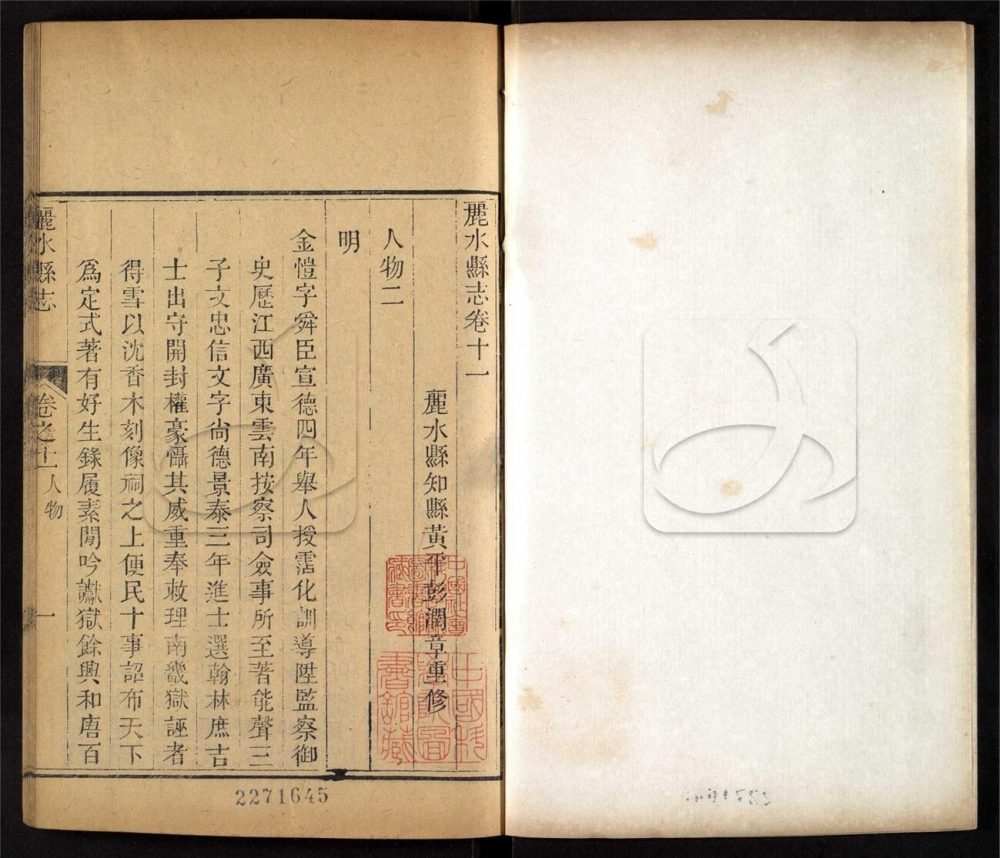 麗水縣志卷十一
麗水縣知縣黃平彭潤章重修
人物二
明
金愷字舜臣宣德四年舉人授霑化訓導陞監察御
史歷江西廣東雲南按察司僉事所至著能聲三
子文忠信文字尙德景泰三年進士選翰林庶吉
士出守開封權豪懾其威重奉敕理南畿獄誣者
得雪以沈香木刻像祠之上便民十事詔布天下
爲定式著有好生錄履素閒吟讞獄餘興和唐百
麗水縣志
卷之十一人物
一
2271645